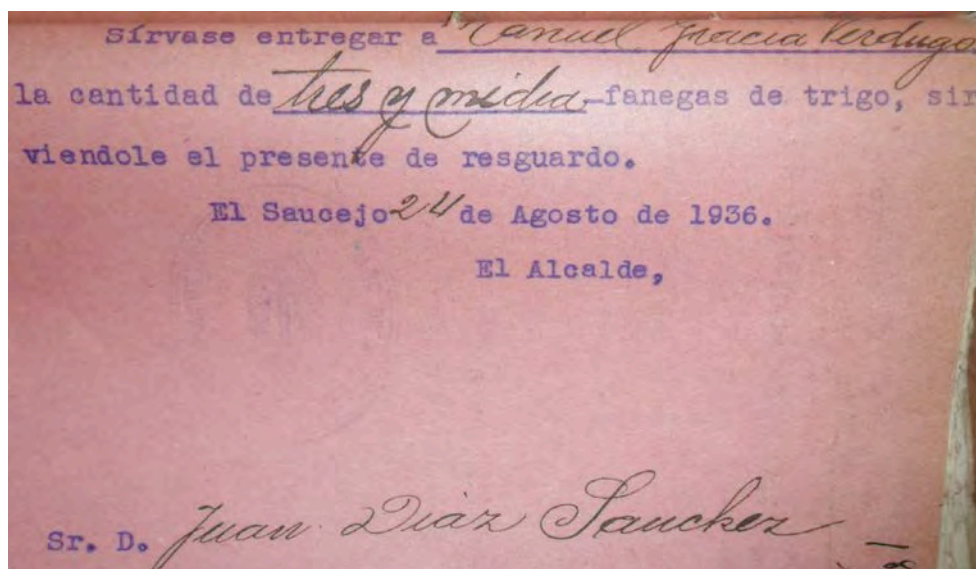 Sírvase entregar a Manuel Gracia Verdugo
la cantidad de tres y media fanegas de trigo, sir
viendole el presente de resguardo.
El Saucejo 24 de Agosto de 1936.
El Alcalde,
Sr. D. Juan Diaz Sanchez